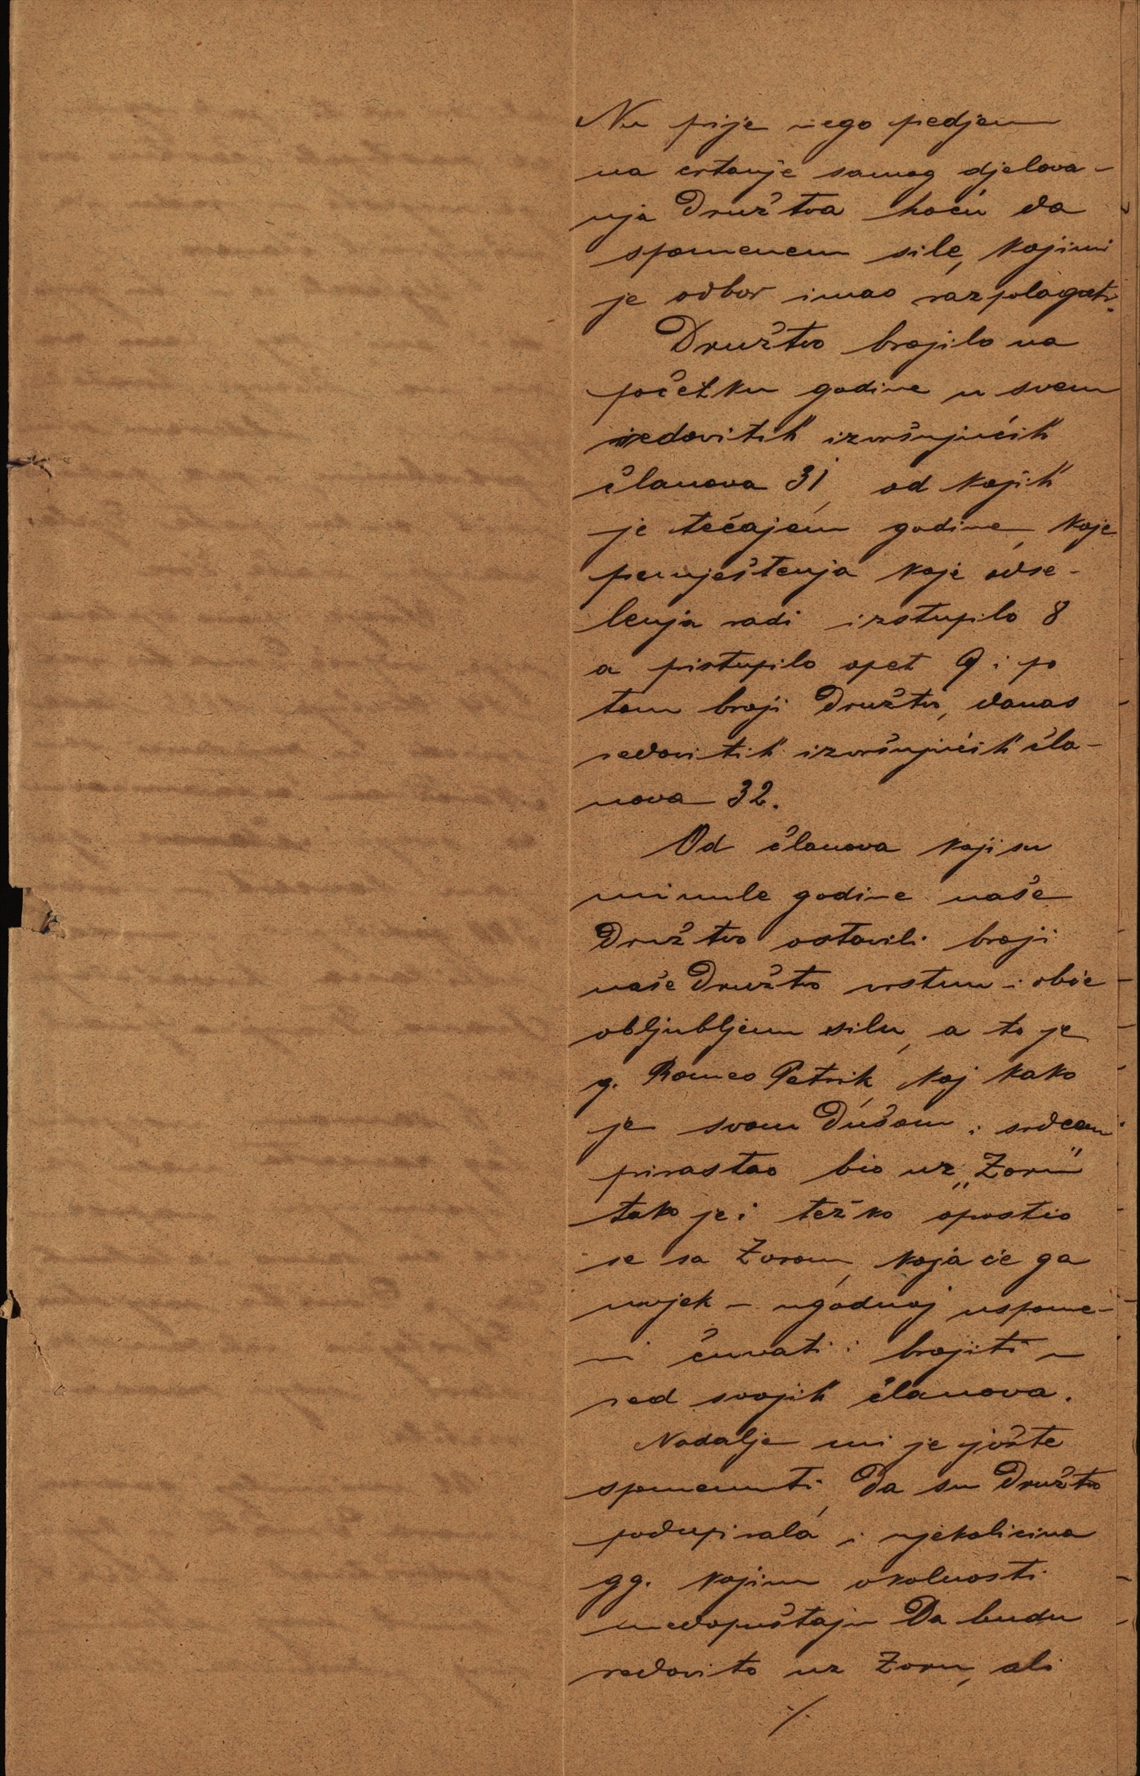 Nu prije nego pedjem
na crtanje samog djelova-
nja Družtva hoću da
spomenem sile, kojimi
je odbor imao razpolagati.
Družtvo brojilo na
početku godine u svem
redovitih izvršujućih
članova 31, od kojih
je tečajem godine, koje
premještenja koje odse-
lenja radi izstupilo 8
a pristupilo opet 9 i po
tom broji Družtvo, danas
redovitih izvršujućih čla-
nova 32.
Od članova koji su
minule godine naše
Družtvo ostavili broji
naše Družtvo vrstnu i obće
obljubljenu silu, a to je
g. Romeo Petrik, koj kako
je svom Dušom i srdcem
prirastao bio uz „Zoru"
tako je i težko oprostio
se sa Zorom, koja će ga
uvjek u ugodnoj uspome-
ni čuvati i brojiti u
red svojih članova.
Nadalje mi je jošte
spomenuti, Da su Družtvo
podupirala i njekolicina
gg. kojim okolnosti
nedopuštaju Da budu
redovito uz Zoru, ali
./.